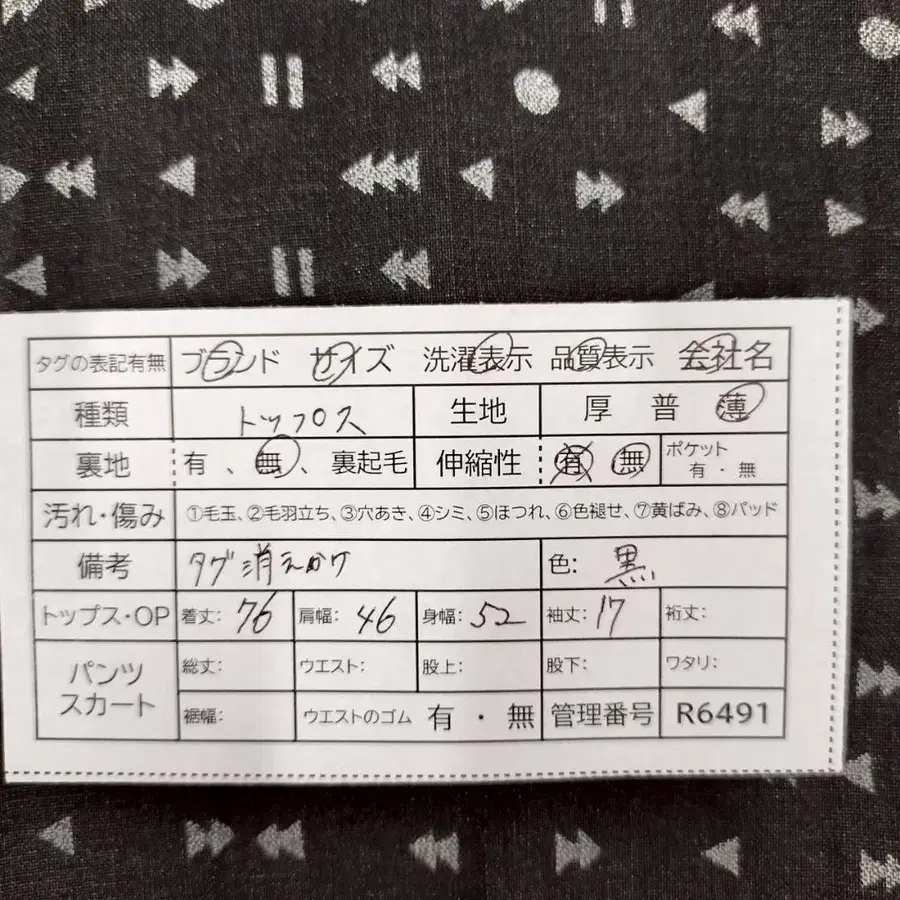 タグの表記有無 ブランド サイズ 洗濯表示 品質表示 会社名
種類 トップス 生地 厚 普 薄
裏地 有、無、裏起毛 伸縮性 有 無 ポケット 有・無
汚れ・傷み ①毛玉、②毛羽立ち、③穴あき、④シミ、⑤ほつれ、⑥色褪せ、⑦黄ばみ、⑧パッド
備考 タグ消えかけ 色: 黒
トップス・OP 着丈: 76 肩幅: 46 身幅: 52 袖丈: 17 裄丈:
パンツ スカート 総丈: ウエスト: 股上: 股下: ワタリ:
裾幅: ウエストのゴム 有・無 管理番号 R6491